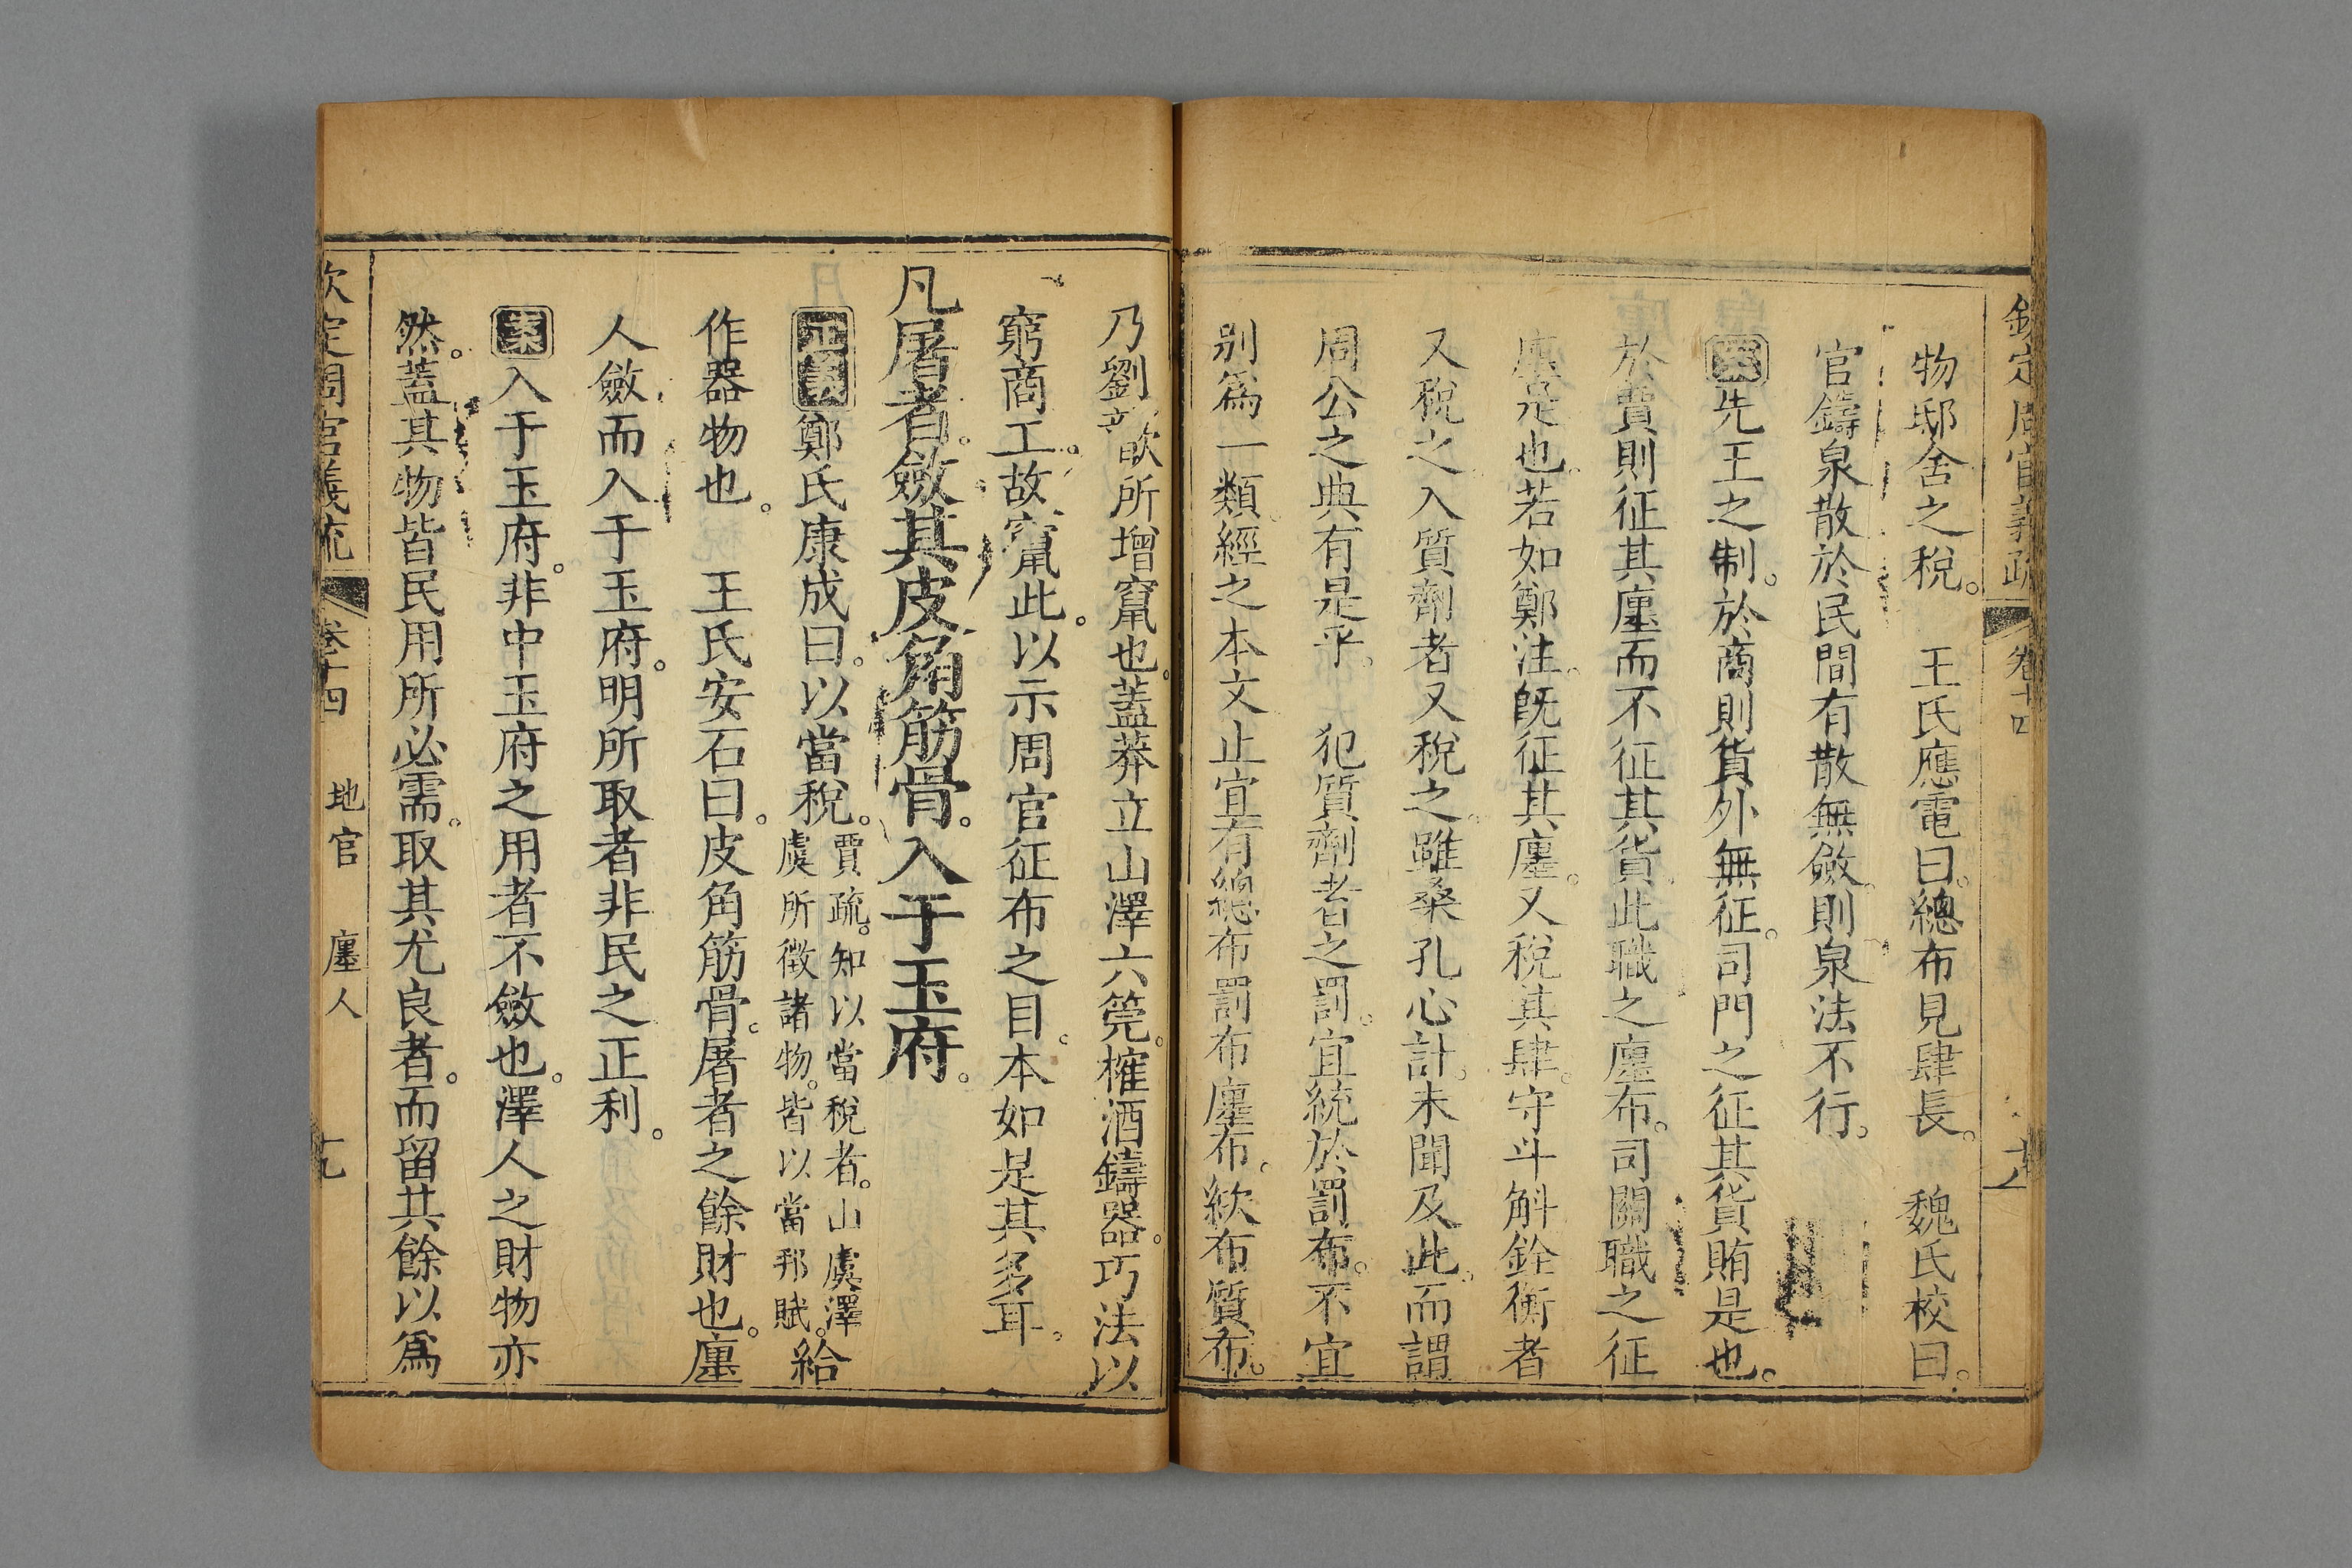 欽定周官義疏 卷十四
物邸舍之稅。 王氏應電曰。總布見肆長。 魏氏校曰。
官鑄泉散於民間有散無斂。則泉法不行。
案先王之制。於商則貨外無征。司門之征其貨賄是也。
於賈則征其廛而不征其貨。此職之廛布。司關職之征
廛是也。若如鄭注。旣征其廛。又稅其肆。守斗斛銓衡者
又稅之。入質劑者又稅之。雖桑孔心計。未聞及此。而謂
周公之典有是乎。 犯質劑者之罰。宜統於罰布。不宜
別爲一類。經之本文止宜有總布罰布廛布。絘布質布。
乃劉歆所增竄也。蓋莽立山澤六筦。榷酒鑄器。巧法以
窮商工。故竄此。以示周官征布之目。本如是其多耳。
凡屠者。斂其皮角筋骨。入于玉府。
正義鄭氏康成曰。以當稅。賈疏。知以當稅者。山虞澤虞所徵諸物。皆以當邦賦。給
作器物也。 王氏安石曰。皮角筋骨。屠者之餘財也。廛
人斂而入于玉府。明所取者非民之正利。
案入于玉府。非中玉府之用者不斂也。澤人之財物亦
然。蓋其物皆民用所必需。取其尤良者。而留其餘以爲
欽定周官義疏 卷十四 地官 廛人 十九